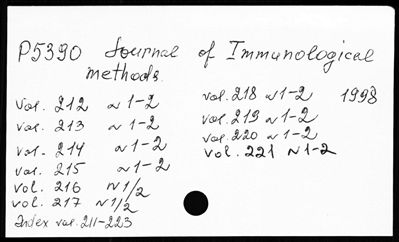 P5390 Journal of Immunological
methods
vol. 212 N 1-2
vol. 213 N 1-2
vol. 214 N 1-2
vol. 215 N 1-2
vol. 216 N 1/2
vol. 217 N 1/2
Index vol. 211-223
vol. 218 N 1-2 1998
vol. 219 N 1-2
vol. 220 N 1-2
vol. 221 N 1-2